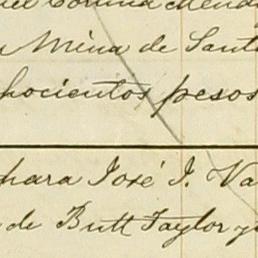 Mina de Sant
hocientos pesos
para José J. Va
de Butt Taylor y